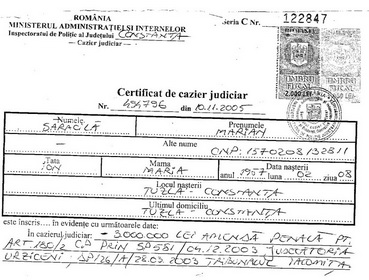 ROMÂNIA
MINISTERUL ADMINISTRAŢIEI ŞI INTERNELOR
Inspectoratul de Poliţie al Judeţului CONSTANŢA
— Cazier judiciar —
Seria C Nr. 122847
TIMBRU FISCAL
2.000 LEI
Certificat de cazier judiciar
Nr. 494796 din 10.11.2005
Numele
SARACILA
Prenumele
MARIAN
Alte nume
CNP: 1570208132811
Tata
ION
Mama
MARIA
Data naşterii
anul 1957 luna 02 ziua 08
Locul naşterii
TUZLA - CONSTANŢA
Ultimul domiciliu
TUZLA - CONSTANŢA
este înscris... în evidenţe cu următoarele date:
În cazierul judiciar: - 3.000.000 LEI AMENDĂ PENALĂ PT.
ART. 180/2 CP PRIN SP 581 /04.12.2003 JUDECĂTORIA
URZICENI - DP/26/A/28.03.2003 TRIBUNALUL IALOMIŢA